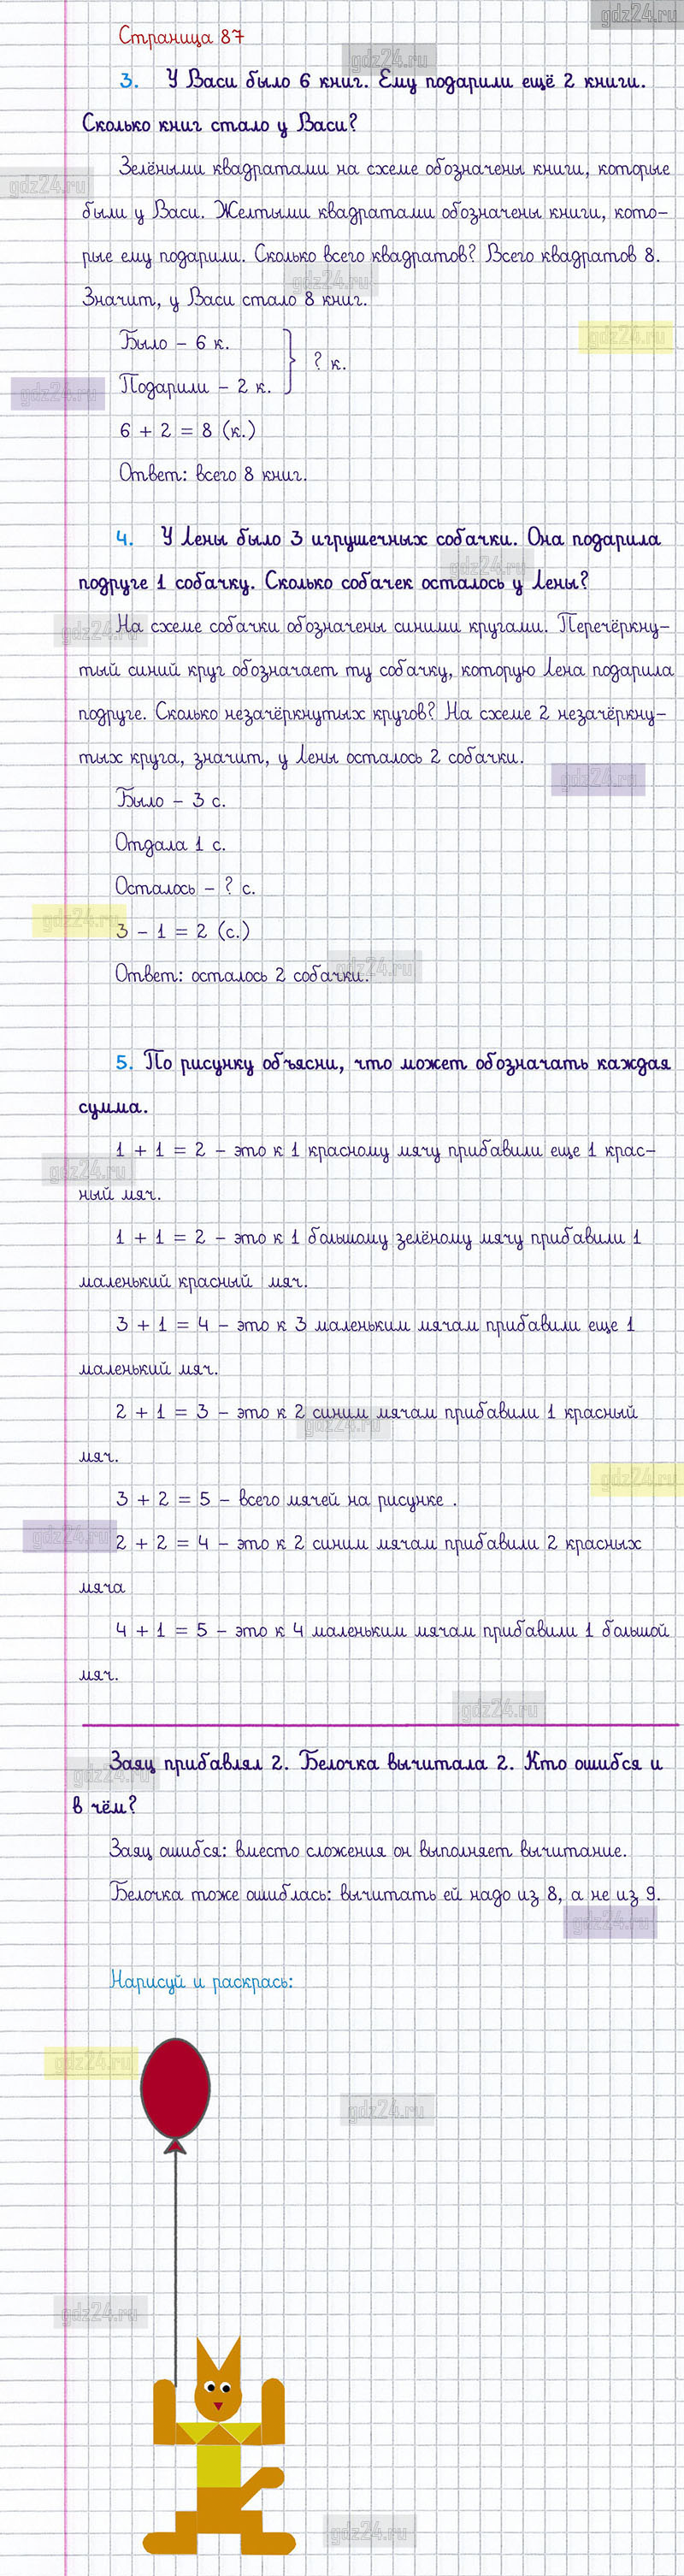 gdz24.ru
Страница 87
gdz24.ru
3. У Васи было 6 книг. Ему подарили ещё 2 книги.
Сколько книг стало у Васи?
Зелёными квадратами на схеме обозначены книги, которые
gdz24.ru
были у Васи. Желтыми квадратами обозначены книги, кото-
рые ему подарили. Сколько всего квадратов? Всего квадратов 8.
gdz24.ru
Значит, у Васи стало 8 книг.
Было – 6 к.
gdz24.ru
? к.
Подарили – 2 к.
gdz24.ru
6 + 2 = 8 (к.)
Ответ: всего 8 книг.
4. У Лены было 3 игрушечных собачки. Она подарила
gdz24.ru
подруге 1 собачку. Сколько собачек осталось у Лены?
На схеме собачки обозначены синими кругами. Перечёркну-
gdz24.ru
тый синий круг обозначает ту собачку, которую Лена подарила
подруге. Сколько незачёркнутых кругов? На схеме 2 незачёркну-
тых круга, значит, у Лены осталось 2 собачки.
gdz24.ru
Было – 3 с.
Отдала 1 с.
Осталось – ? с.
gdz24.ru
3 – 1 = 2 (с.)
gdz24.ru
Ответ: осталось 2 собачки.
5. По рисунку объясни, что может обозначать каждая
сумма.
1 + 1 = 2 – это к 1 красному мячу прибавили еще 1 крас-
gdz24.ru
ный мяч.
1 + 1 = 2 – это к 1 большому зелёному мячу прибавили 1
маленький красный мяч.
3 + 1 = 4 – это к 3 маленьким мячам прибавили еще 1
маленький мяч.
2 + 1 = 3 – это к 2 синим мячам прибавили 1 красный
gdz24.ru
мяч.
gdz24.ru
3 + 2 = 5 – всего мячей на рисунке .
gdz24.ru
2 + 2 = 4 – это к 2 синим мячам прибавили 2 красных
мяча
4 + 1 = 5 – это к 4 маленьким мячам прибавили 1 большой
мяч.
gdz24.ru
Заяц прибавлял 2. Белочка вычитала 2. Кто ошибся и
gdz24.ru
в чём?
Заяц ошибся: вместо сложения он выполняет вычитание.
Белочка тоже ошиблась: вычитать ей надо из 8, а не из 9.
gdz24.ru
Нарисуй и раскрась:
gdz24.ru
gdz24.ru
gdz24.ru
gdz24.ru